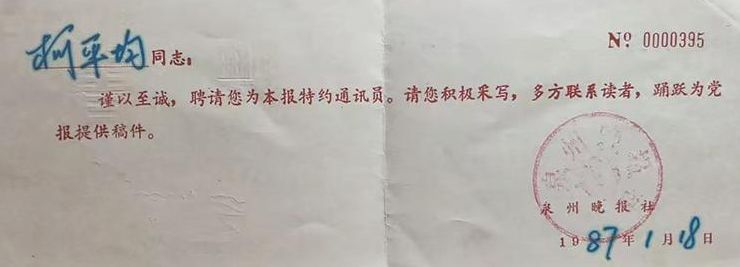 柯平均同志：
№ 0000395
谨以至诚，聘请您为本报特约通讯员。请您积极采写，多方联系读者，踊跃为党
报提供稿件。
泉州晚报社
1987年1月18日